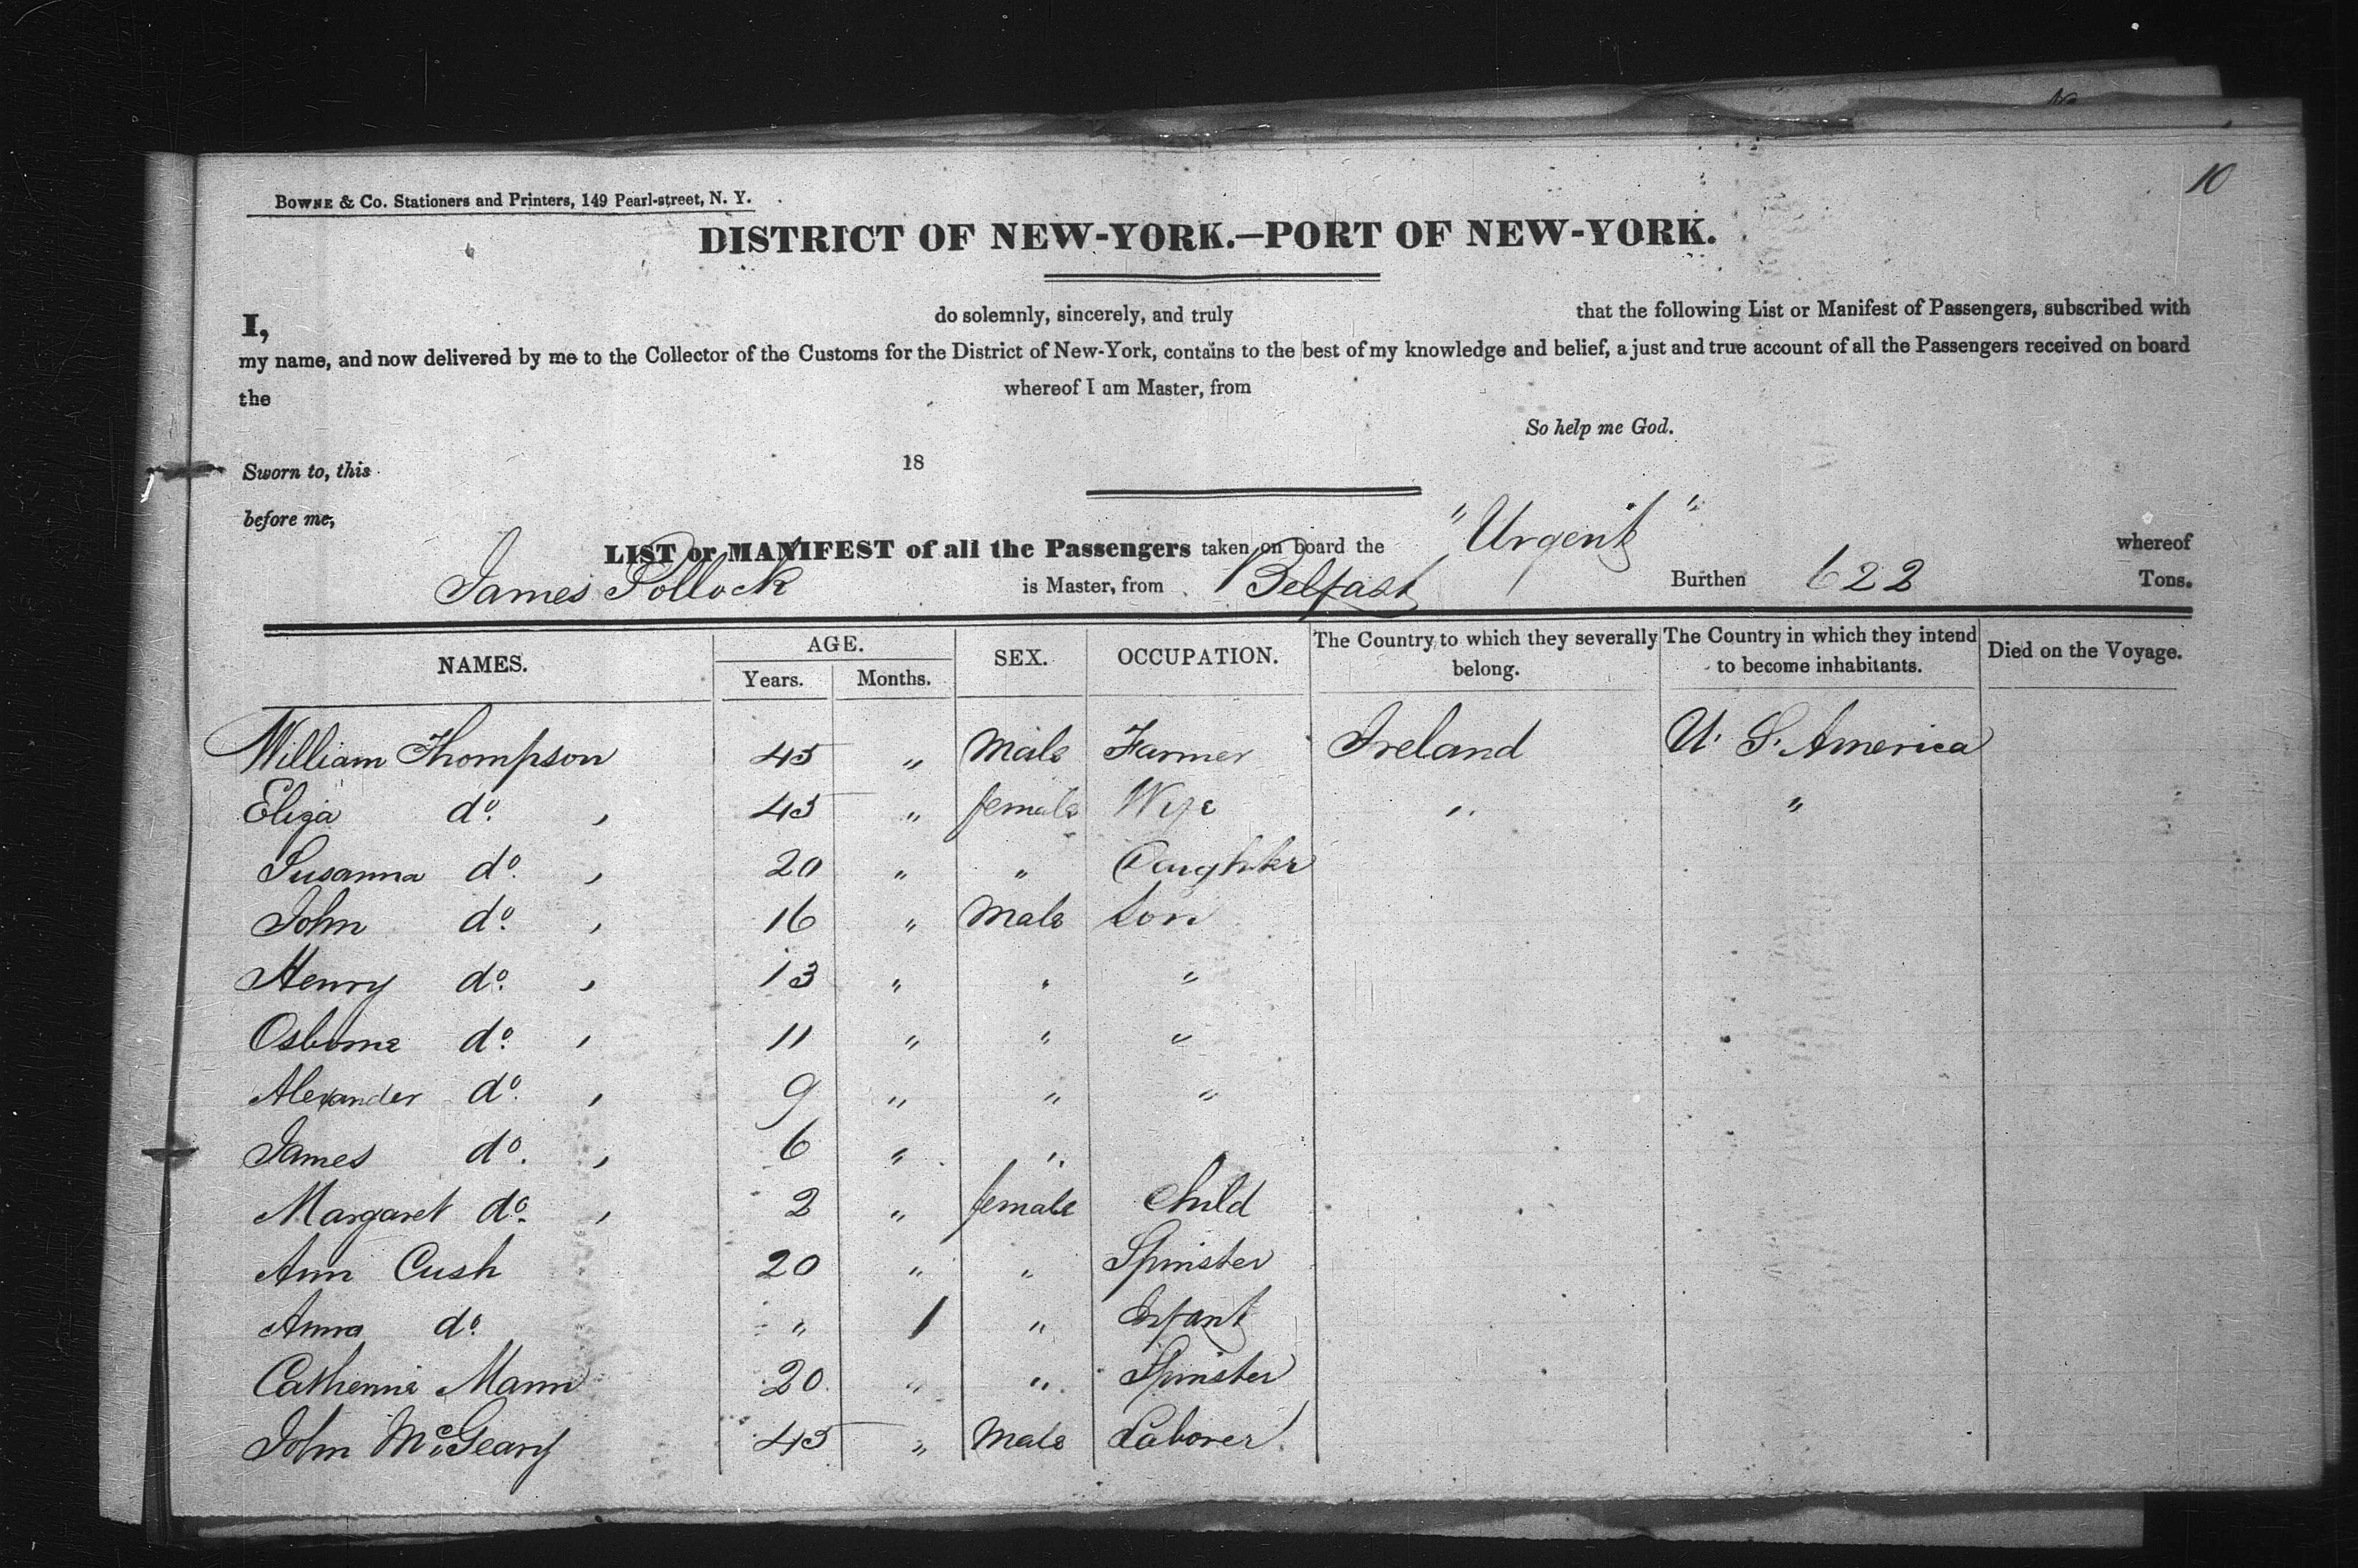 10
BOWNE & Co. Stationers and Printers, 149 Pearl-street, N. Y.
DISTRICT OF NEW-YORK.—PORT OF NEW-YORK.
I, do solemnly, sincerely, and truly that the following List or Manifest of Passengers, subscribed with
my name, and now delivered by me to the Collector of the Customs for the District of New-York, contains to the best of my knowledge and belief, a just and true account of all the Passengers received on board
the whereof I am Master, from
So help me God.
Sworn to, this 18
before me,
LIST or MANIFEST of all the Passengers taken on board the "Urgent" whereof
James Pollock is Master, from Belfast Burthen 622 Tons.
NAMES. AGE. Years. Months. SEX. OCCUPATION. The Country to which they severally belong. The Country in which they intend to become inhabitants. Died on the Voyage.
William Thompson 45 " Male Farmer Ireland U. S. America
Eliza do. , 45 " female Wife " "
Susanna do. , 20 " " Daughter
John do. , 16 " Male Son
Henry do. , 13 " " "
Osborne do. , 11 " " "
Alexander do. , 9 " " "
James do. , 6 " " "
Margaret do. , 2 " female Child
Ann Cush 20 " " Spinster
Anna do. " 1 " Infant
Catherine Mann 20 " " Spinster
John McGeary 45 " Male Laborer